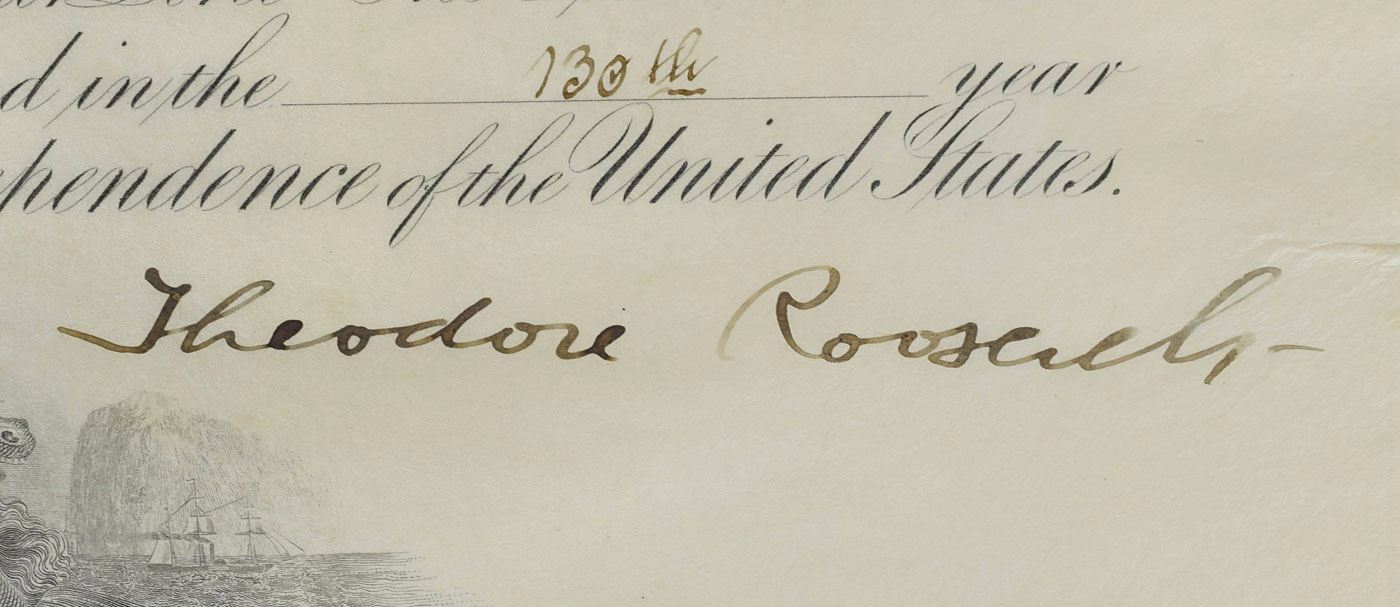 d in the 130th year
pendence of the United States.
Theodore Roosevelt